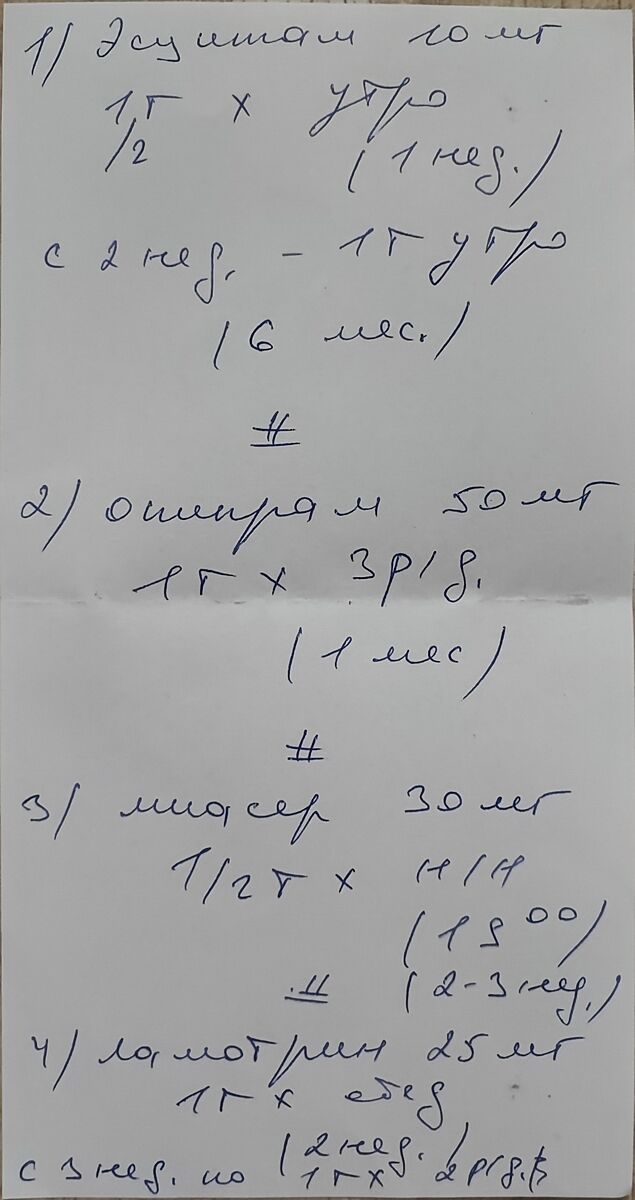 1) Эсцитам 10 мг
1т х утро
/2 (1 нед.)
с 2 нед. - 1т утро
(6 мес.)
#
2) опипрам 50 мг
1т х 3 р/д.
(1 мес)
#
3) миасер 30 мг
1/2т х н/н
(19 00)
# (2-3 нед.)
4) ламотрин 25 мг
1т х обед
(2 нед.)
с 3 нед. по 1т х 2 р/д.